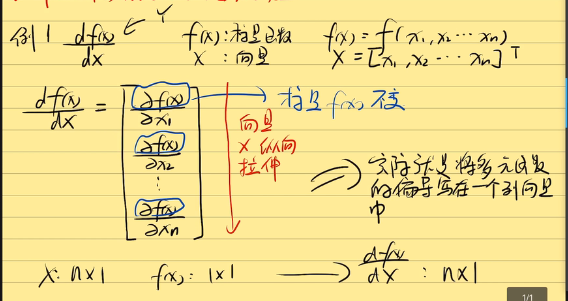 例1 df(x)/dx ← Y f(x):标量函数 f(x)=f(x1,x2…xn)
X:向量 X=[x1,x2…xn]T
df(x)/dx = [∂f(x)/∂x1 ∂f(x)/∂x2 ⋮ ∂f(x)/∂xn]
标量f(x)不变
向量
X纵向
拉伸
实际就是将多元函数
的偏导写在一个列向量
中
X:n×1 f(x):1×1 → df(x)/dX:n×1
1/1